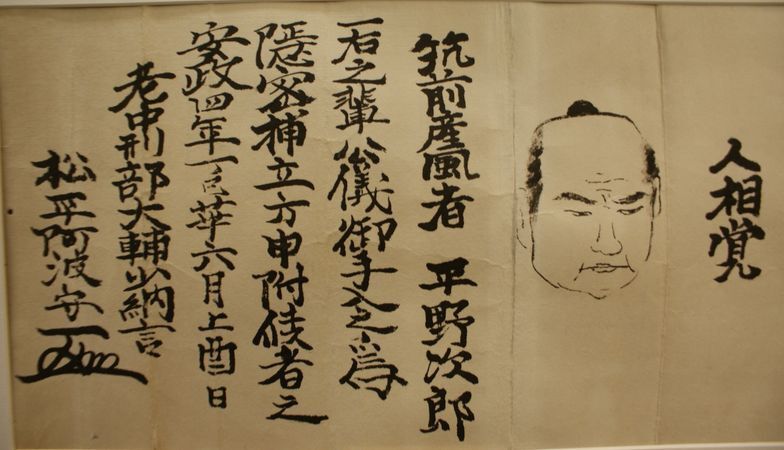 人相覚
筑前産風者 平野次郎
右之輩公儀御手入之為
隠密補立方申附候者之
安政四年 六月上酉日
老中刑部大輔少納言
松平阿波守